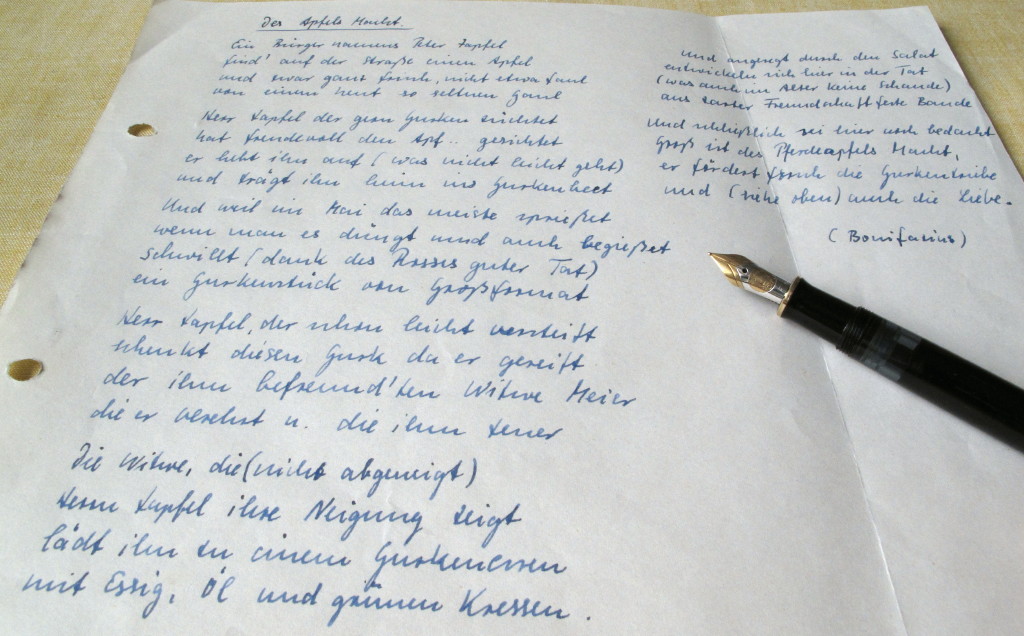 Des Apfels Macht.
Ein Bürger namens Peter Zapfel
find' auf der Straße einen Apfel
und zwar ganz frisch, nicht etwa faul
von einem heut so seltnen Gaul
Herr Zapfel der gern Gurken züchtet
hat freudevoll den Apf.. gesichtet
er hebt ihn auf (was nicht leicht geht)
und trägt ihn heim ins Gurkenbeet
Und weil im Mai das meiste sprießet
wenn man es düngt und auch begießet
schwillt (dank des Rosses guter Tat)
ein Gurkenstück von Großformat
Herr Zapfel, der schon leicht versteift
schenkt diesen Gurk da er gereift
der ihm befreund'ten Witwe Meier
die er verehrt u. die ihm teuer
Die Witwe, die (nicht abgeneigt)
Herrn Zapfel ihre Neigung zeigt
lädt ihn zu einem Gurkenessen
mit Essig, Öl und grünen Kressen.
Und angeregt durch den Salat
entwickeln sich hier in der Tat
(was auch im Alter keine Schande)
aus zarter Freundschaft feste Bande
Und schließlich sei hier noch bedacht
Groß ist des Pferdeapfels Macht,
er fördert frisch die Gurkentriebe
und (siehe oben) auch die Liebe.
(Bonifazius)